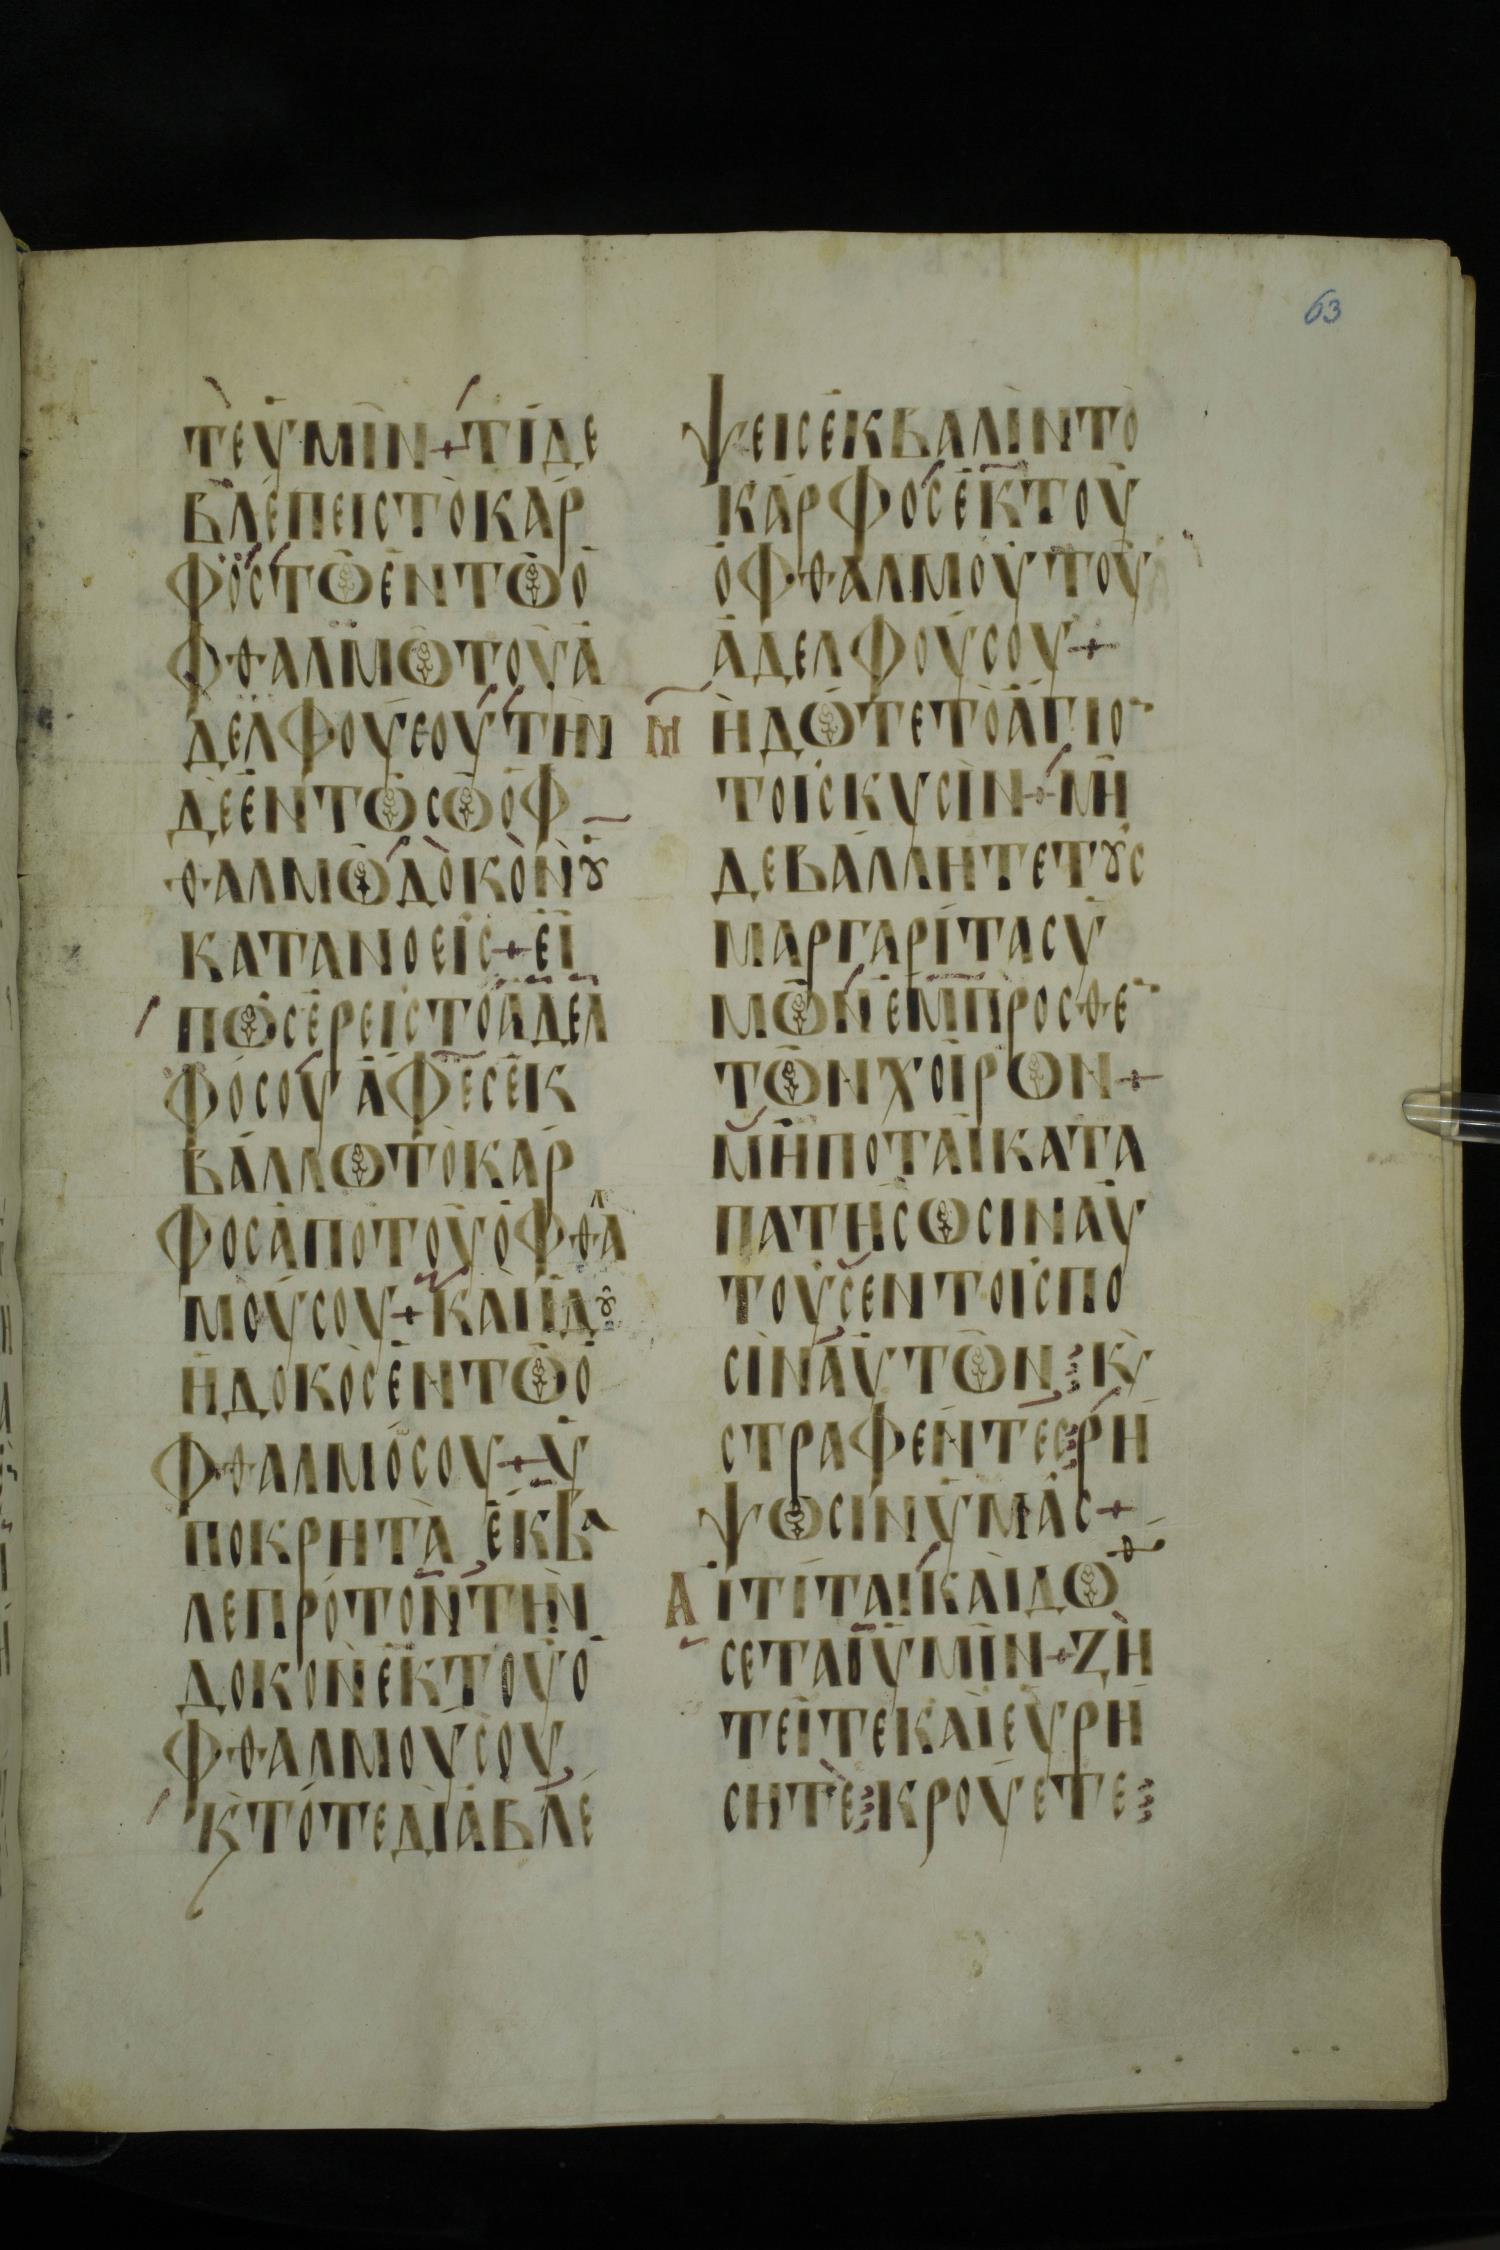 63
ΤΕΥΜΙΝ+ΤΙΔΕ
ΒΛΕΠΕΙΣΤΟΚΑΡ
ΦΟΣΤΩΕΝΤΩΟ
ΦΘΑΛΜΩΤΟΥΑ
ΔΕΛΦΟΥΣΟΥΤΗΝ
ΔΕΕΝΤΩΣΩΟΦ
ΘΑΛΜΩΔΟΚΟΝȣ
ΚΑΤΑΝΟΕΙΣ+ΕΙ
ΠΩΣΕΡΕΙΣΤΟΑΔΕΛ
ΦΟΣΟΥΑΦΕΣΕΚ
ΒΑΛΛΩΤΟΚΑΡ
ΦΟΣΑΠΟΤΟΥΟΦΘΑΛ
ΜΟΥΣΟΥ+ΚΑΙΙΔȣ
ΗΔΟΚΟΣΕΝΤΩΟ
ΦΘΑΛΜΟΣΟΥ+Υ
ΠΟΚΡΗΤΑ ΕΚΒΑ
ΛΕΠΡΟΤΟΝΤΗΝ
ΔΟΚΟΝΕΚΤΟΥΟ
ΦΘΑΛΜΟΥΣΟΥ
ΚΤΟΤΕΔΙΑΒΛΕ
ΨΕΙΣΕΚΒΑΛΙΝΤΟ
ΚΑΡΦΟΣΕΚΤΟΥ
ΟΦΘΑΛΜΟΥΤΟΥ
ΑΔΕΛΦΟΥΣΟΥ+
Μ ΗΔΩΤΕΤΟΑΓΙΟ
ΤΟΙΣΚΥΣΙΝ+ΜΗ
ΔΕΒΑΛΛΗΤΕΤȣΣ
ΜΑΡΓΑΡΙΤΑΣΥ
ΜΩΝΕΜΠΡΟΣΘΕ
ΤΩΝΧΟΙΡΩΝ+
ΜΗΠΟΤΑΙΚΑΤΑ
ΠΑΤΗΣΩΣΙΝΑΥ
ΤΟΥΣΕΝΤΟΙΣΠΟ
ΣΙΝΑΥΤΩΝ⁝Κ
ΣΤΡΑΦΕΝΤΕΣ⁝ΡΗ
ΨΩΣΙΝΥΜΑΣ+
Α ΙΤΙΤΑΙΚΑΙΔΩΘ
ΣΕΤΑΙΥΜΙΝ+ΖΗ
ΤΕΙΤΕΚΑΙΕΥΡΗ
ΣΗΤΕ⁝ΚΡΟΥΕΤΕ⁝